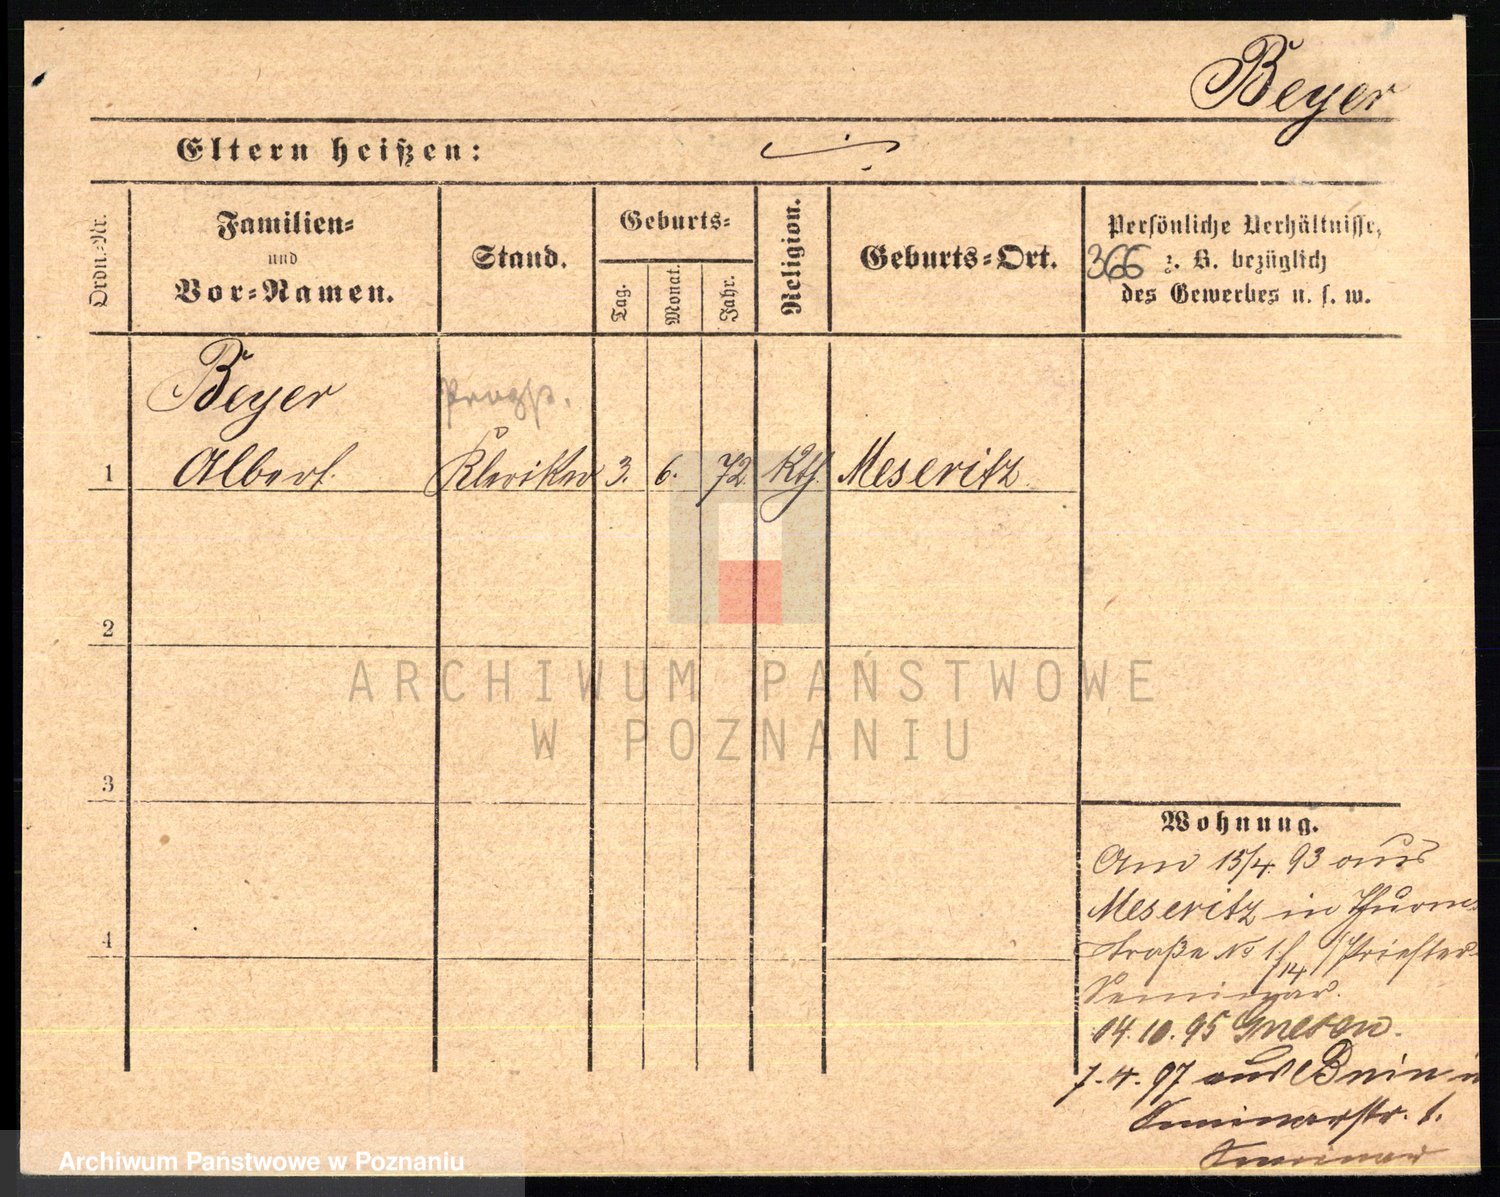 Beyer
Eltern heißen:
Ordn.-Nr.
Familien-
und
Vor-Namen.
Stand.
Geburts-
Tag.
Monat.
Jahr.
Religion.
Geburts-Ort.
Persönliche Verhältnisse,
366 z. B. bezüglich
des Gewerbes u. s. w.
Beyer
Propst.
1 Albert. Kleriker 3. 6. 72 kth. Meseritz
2
3
4
Wohnung.
Am 15/4. 93 aus
Meseritz in Thurm
straße No 1/14 Priester
Seminar.
04.10.95 Gnesen.
7.4.97 aus Bnin in
Seminarstr. 1.
Seminar
ARCHIWUM PAŃSTWOWE
W POZNANIU
Archiwum Państwowe w Poznaniu